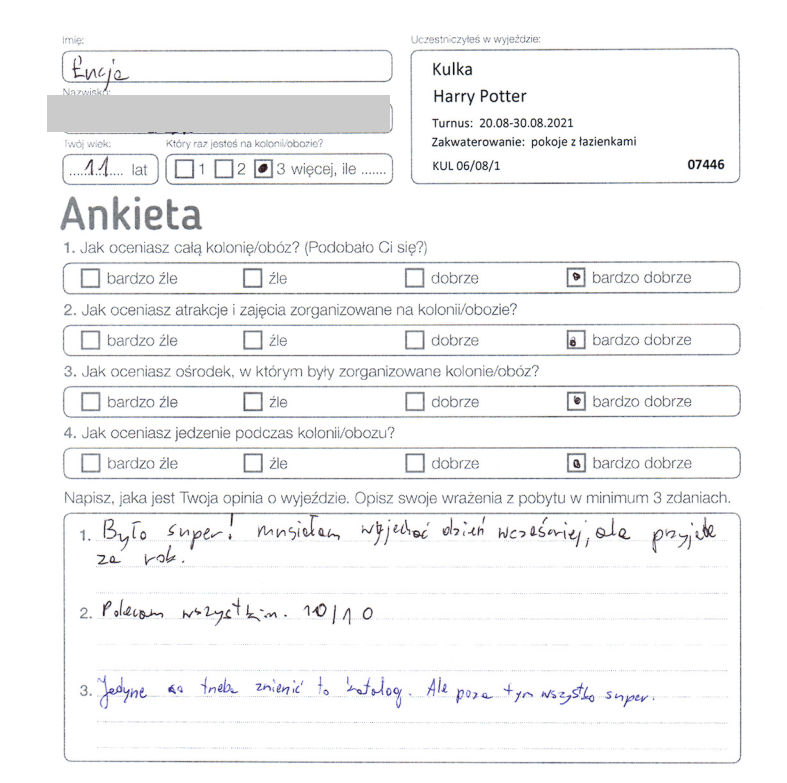 Imię:
Łucja
Nazwisko:
Twój wiek:
Który raz jesteś na kolonii/obozie?
....11.... lat
1 2 3 więcej, ile .......
Uczestniczyłeś w wyjeździe:
Kulka
Harry Potter
Turnus: 20.08-30.08.2021
Zakwaterowanie: pokoje z łazienkami
KUL 06/08/1 07446
Ankieta
1. Jak oceniasz całą kolonię/obóz? (Podobało Ci się?)
bardzo źle źle dobrze bardzo dobrze
2. Jak oceniasz atrakcje i zajęcia zorganizowane na kolonii/obozie?
bardzo źle źle dobrze bardzo dobrze
3. Jak oceniasz ośrodek, w którym były zorganizowane kolonie/obóz?
bardzo źle źle dobrze bardzo dobrze
4. Jak oceniasz jedzenie podczas kolonii/obozu?
bardzo źle źle dobrze bardzo dobrze
Napisz, jaka jest Twoja opinia o wyjeździe. Opisz swoje wrażenia z pobytu w minimum 3 zdaniach.
1. Było super! musiałam wyjechać dzień wcześniej, ale przyjadę
za rok.
2. Polecam wszystkim. 10/10
3. Jedyne co trzeba zmienić to katalog. Ale poza tym wszystko super.